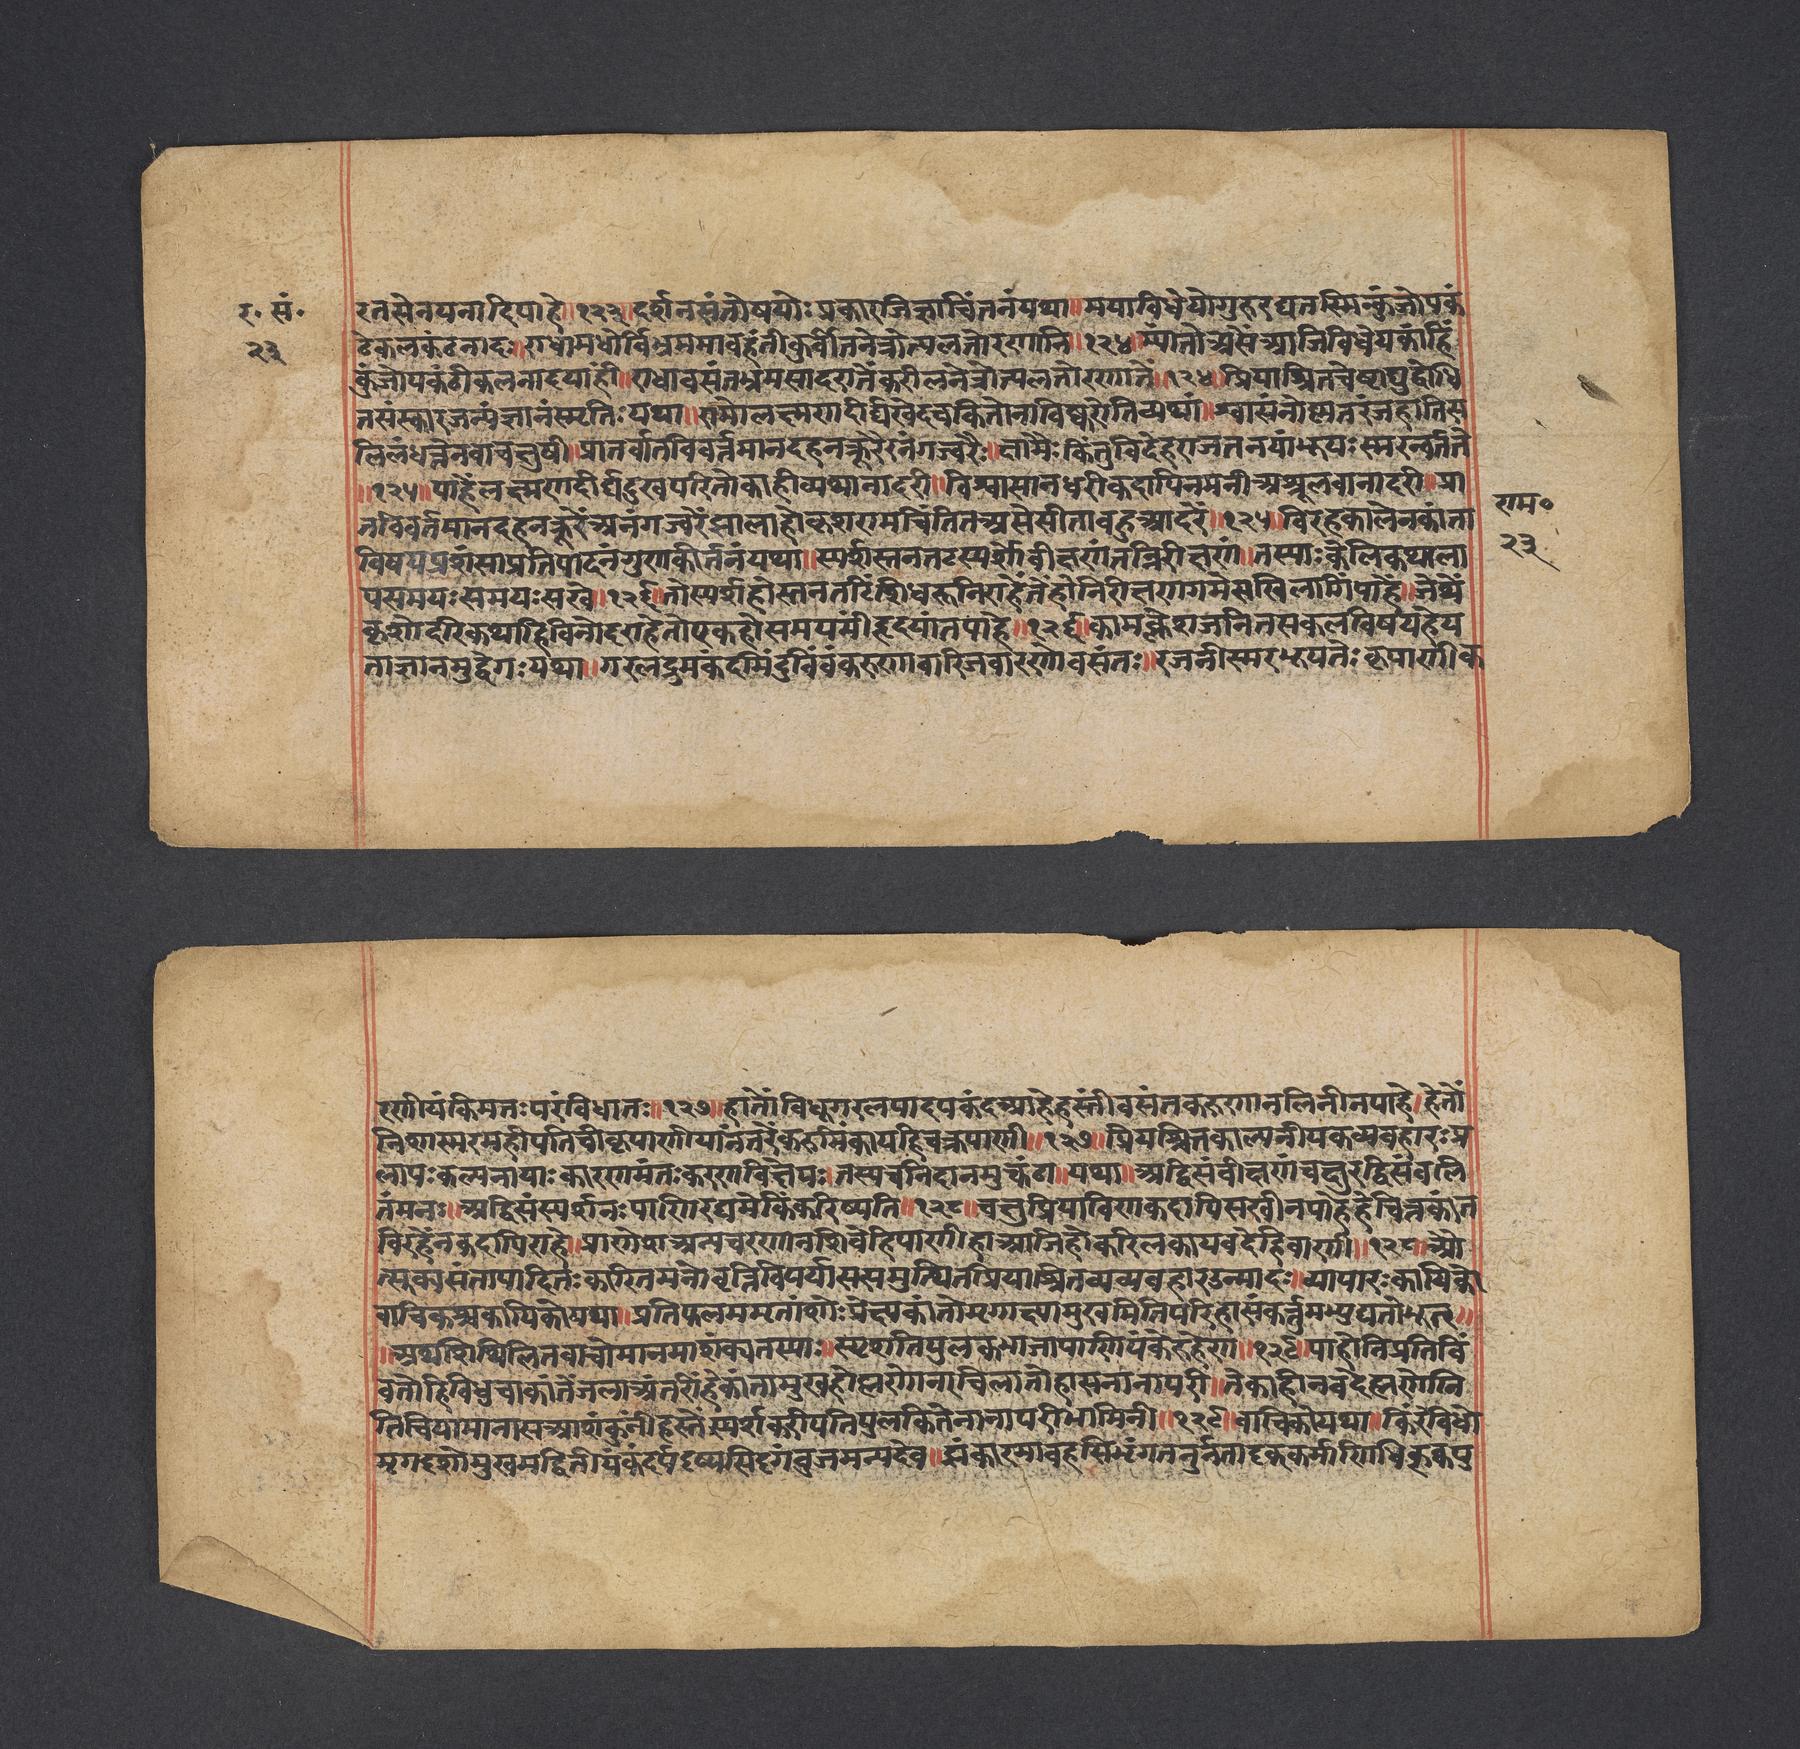 र. सं.
२३
रतसेनयनाहिपाहे॥१२३॥दर्शनसंतोषयोः प्रकारजिज्ञाचिंतनंयथा॥मयाविधेयोगुहरद्यतस्मिन्कुंजोपकं
ठेकलकंठनादः॥राधामधोर्विभ्रममावहंतीकुर्वीतनेत्रोत्पलतोरणानि॥१२४॥म्यांतोअसेंआजिविधेयकांहिं
कुंजोपकंठीकलनादयांही॥राधावसंतभ्रमसादरातेंकरीलनेत्रोत्पलतोरणातें॥१२४॥प्रियाश्रितचेष्टाद्युद्बोधि
तसंस्कारजन्यंज्ञानंस्मृतिःयथा॥रामोलक्ष्मणदीर्घदुःखचकितोनाविष्करोतिव्यथां॥श्वासंनोष्मतरंजहातिस
लिलंधत्तेनवाचक्षुषी॥प्रातर्वातविवर्त्तमानदहनक्रूरैरनंगज्वरैः॥क्षामैः किंतुविदेहराजतनयांभूयः स्मरन्वर्तते
॥१२५॥पाहेंलक्ष्मणदीर्घदुःखपरितोकांहीव्यथानादरी॥विश्वासानधरीकदापिनमनीअश्रूलवानादरी॥प्रा
तविवर्तमानदहनक्रूरेंअनंगज्वरेंझालाहोकृशरामचिंतितअसेसीताबहूआदरें॥१२५॥विरहकालेनकांता
विषयप्रशंसाप्रतिपादनंगुणकीर्तनंयथा॥स्पर्शस्तनतटस्पर्शोवीक्षणंतन्निरीक्षणं॥तस्याःकेलिकथाला
पसमयःसमयःसखे॥१२६॥तोस्पर्शहोस्तनतटिंशिधक्तनिराहेंतेंहोनिरीक्षणगमेसखिलागिंपाहे॥जेथें
कृशोदरिकथाहिविनोदराहेतोएकहोसमयमीहृदयांतपाहे॥१२६॥कामक्लेशजनितसकलविषयहेय
ताज्ञानमुद्वेगःयथा॥गरलद्रुमकंदमिंदुबिंबंकरुणावारिजवारणोवसंतः॥रजनीस्मरभूपतेः कृपाणीक
राम०
२३
रणीयंकिमतःपरंविधातः॥१२७॥हातोंविधुगरलपादपकंदआहेहस्तीवसंतकरुणानलिनीनपाहे॥हेतों
निशास्मरमहीपतिचीकृपाणीयानंतरेंकरुमिंकायहिचक्रपाणी॥१२७॥प्रियाश्रितकाल्पनीयकव्यवहारःप्र
लापःकल्पनायाःकारणमंतःकरणविक्षेपः॥तस्यचनिदानमुत्कंठा॥यथा॥अद्विसंवीक्षणंचक्षुरद्विसंवलि
तंमनः॥अद्विसंस्पर्शनःपाणिरद्यमेकिंकरिष्यति॥१२८॥चक्षुप्रियाविणकदापिसखीनपाहेहेचित्तकांत
विरहेंनकदापिराहे॥प्राणेशअन्यचरणानशिवेहिपाणीहाआजिहोकरिलकायवदेहिवाणी॥१२८॥औ
त्सुक्यसंतापादिनिःकारितमनोवृत्तिविपर्याससमुत्थितप्रियाश्रितव्यव्यवहारउन्मादः॥व्यापारःकायिको
वाचिकअकायिकोयथा॥प्रतिफलममृतांशोःप्रेक्ष्यकांतोमृगाक्ष्यामुखमितिपरिहासंकर्तुमभ्युद्यतोभूत्॥
॥अथशिथिलितवाचोमानमाशंक्यतस्याः॥स्पृशतिपुलकभाजापाणिपंकेरुहेण॥१२९॥पाहोनिप्रतिबिं
बतोहिविधुचाकांतेंजलाअंतरींहेकांतामुखहोह्मणोनरचिलातोहासनानापरी॥तेकाहींनवदेह्मणोनि
तिचियामानासआशंकुंनीहस्तेंस्पर्शकरीपतिपुलकितेनानापरीभामिनी॥१२९॥वाचिकोयथा॥किंरेविधो
मृगदृशोमुखमद्वितीयंकंदर्पदृष्यसिदृगंबुजमन्यदेव॥झंकारमावहसिभृंगतनुर्नतादृक्कर्माणिधिक्कुकपु